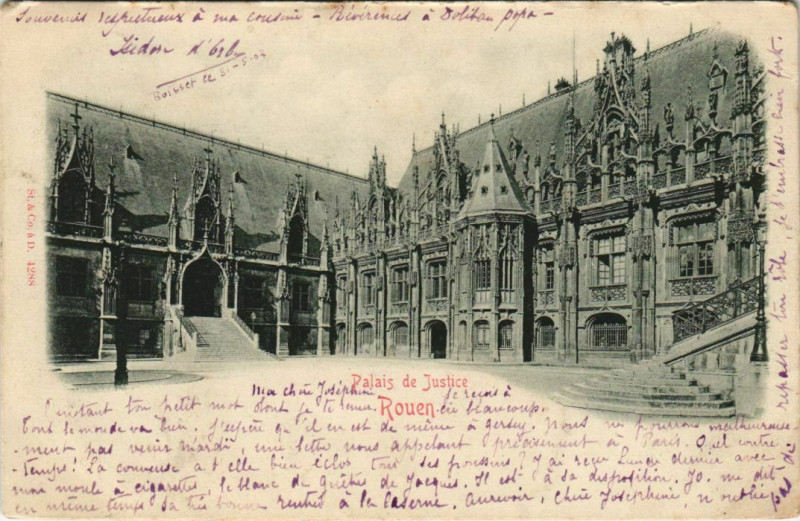 Souvenirs respectueux à ma cousine - Révérences à Doliban papa -
Isidore d'
Boisset le 31-5-02
St. & Co. à D. 1288
Palais de Justice
Rouen.
Ma chère Joséphine Je reçois à
l'instant ton petit mot dont je te remercie beaucoup.
Tout le monde va bien. J'espère qu'il en est de même à Nous ne pourrons malheureuse-
ment pas venir mardi, une lettre nous appelant précisément à Paris. Quel contre-
-temps! La couveuse a t'elle bien éclos tous ses poussins? J'ai reçu Lundi dernier avec
mon moule à cigarettes, le blanc de guêtres de Jacques. Il est à sa disposition. Jo. me dit
en même temps sa très bonne rentrée à la Caserne. Aurevoir, Chère Joséphine, n'oublie
pas de
repasser ton rôle, je t'embrasse bien fort.